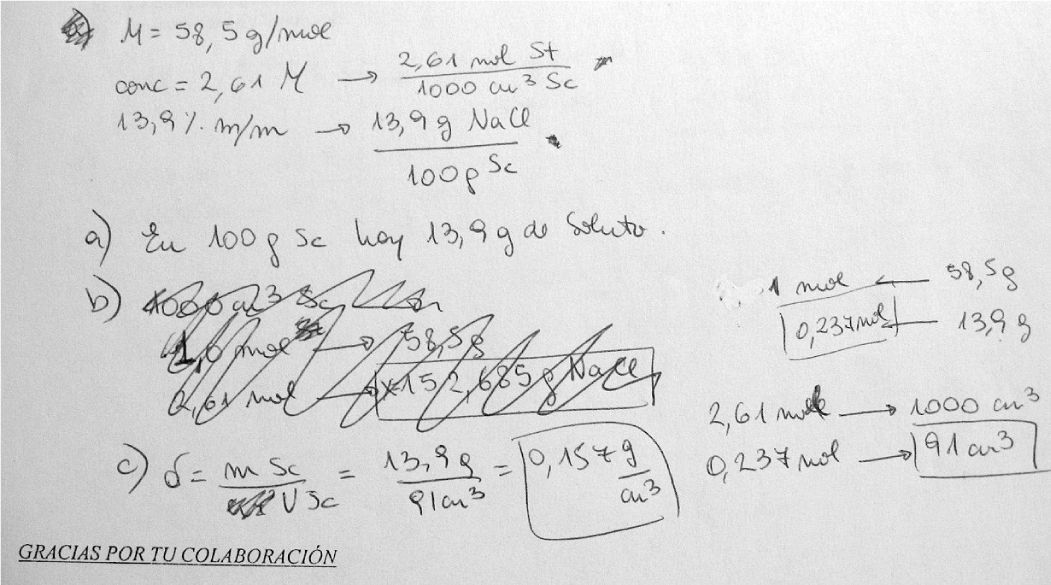 M = 58,5 g/mol
conc = 2,61 M → 2,61 mol St / 1000 cm³ Sc
13,9 % m/m → 13,9 g NaCl / 100 g Sc
a) En 100 g Sc hay 13,9 g de Soluto.
b) 1000 cm³ Sc
1,0 mol → 58,5 g
2,61 mol → x = 152,685 g NaCl
1 mol ← 58,5 g
0,237 mol ← 13,9 g
2,61 mol → 1000 cm³
0,237 mol → 91 cm³
c) δ = m Sc / V Sc = 13,9 g / 91 cm³ = 0,157 g/cm³
GRACIAS POR TU COLABORACIÓN